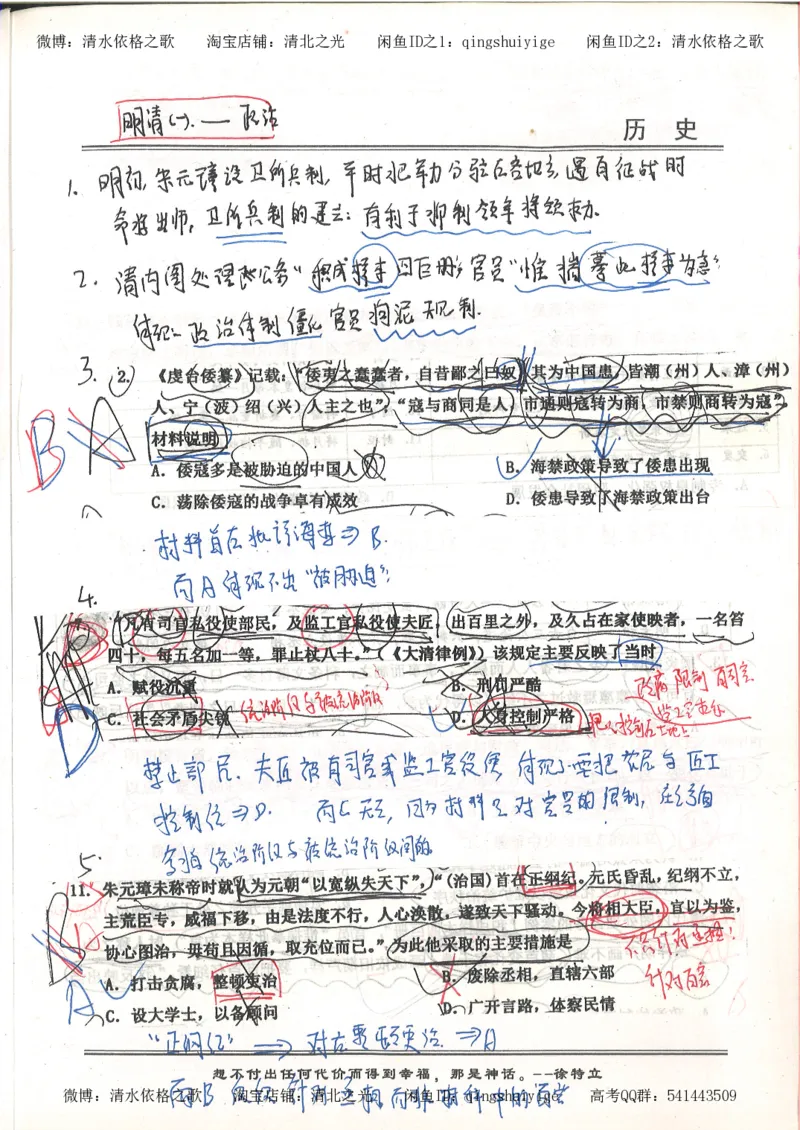 微博：清水依格之歌 淘宝店铺：清北之光 闲鱼ID之1：qingshuiyige 闲鱼ID之2：清水依格之歌
明清(一).— 政治
历 史
1. 明初,朱元璋设卫所兵制,平时把军力分驻在各地,遇有征战时
命将出师,卫所兵制的建立:有利于抑制领军将领权力.
2. 清内阁处理公务"积成 官员"惟揣摹此 为急"
体现:政治体制僵化 官员拘泥 规制.
3. 2. 《虔台倭纂》记载：“倭夷之蠢蠢者，自昔鄙之曰奴，其为中国患，皆潮（州）人、漳（州）
人、宁（波）绍（兴）人主之也”，“寇与商同是人，市通则寇转为商，市禁则商转为寇”，
材料说明
B A
A．倭寇多是被胁迫的中国人 B．海禁政策导致了倭患出现
C．荡除倭寇的战争卓有成效 D．倭患导致了海禁政策出台
材料旨在批评海禁⇒B.
而A体现不出"被胁迫"
4.
“凡有司官私役使部民，及监工官私役使夫匠，出百里之外，及久占在家使唤者，一名笞
四十，每五名加一等，罪止杖八十。”（《大清律例》）该规定主要反映了当时
A．赋役沉重 B．刑罚严酷
C．社会矛盾尖锐 D．人身控制严格
统治阶级与被统治阶级
限制有司官
监工官
D
禁止部民、夫匠被有司官或监工官役使 体现 要把农民与匠工
控制住⇒D. 而C无关,因为材料是对官员的限制,
统治阶级与被统治阶级间的
5.
11. 朱元璋未称帝时就认为元朝“以宽纵失天下”，“（治国）首在正纲纪。元氏昏乱，纪纲不立，
主荒臣专，威福下移，由是法度不行，人心涣散，遂致天下骚动。今将相大臣，宜以为鉴，
协心图治，毋苟且因循，取充位而已。”为此他采取的主要措施是
A．打击贪腐，整顿吏治 B．废除丞相，直辖六部
C．设大学士，以备顾问 D．广开言路，体察民情
针对百官
A
"正纲纪" ⟶ 对应整顿吏治.⇒A
想不付出任何代价而得到幸福，那是神话。--徐特立
而B 仅仅针对丞相而非材料中的百官
微博：清水依格之歌 淘宝店铺：清北之光 闲鱼ID：qingshuiyige 高考QQ群：541443509